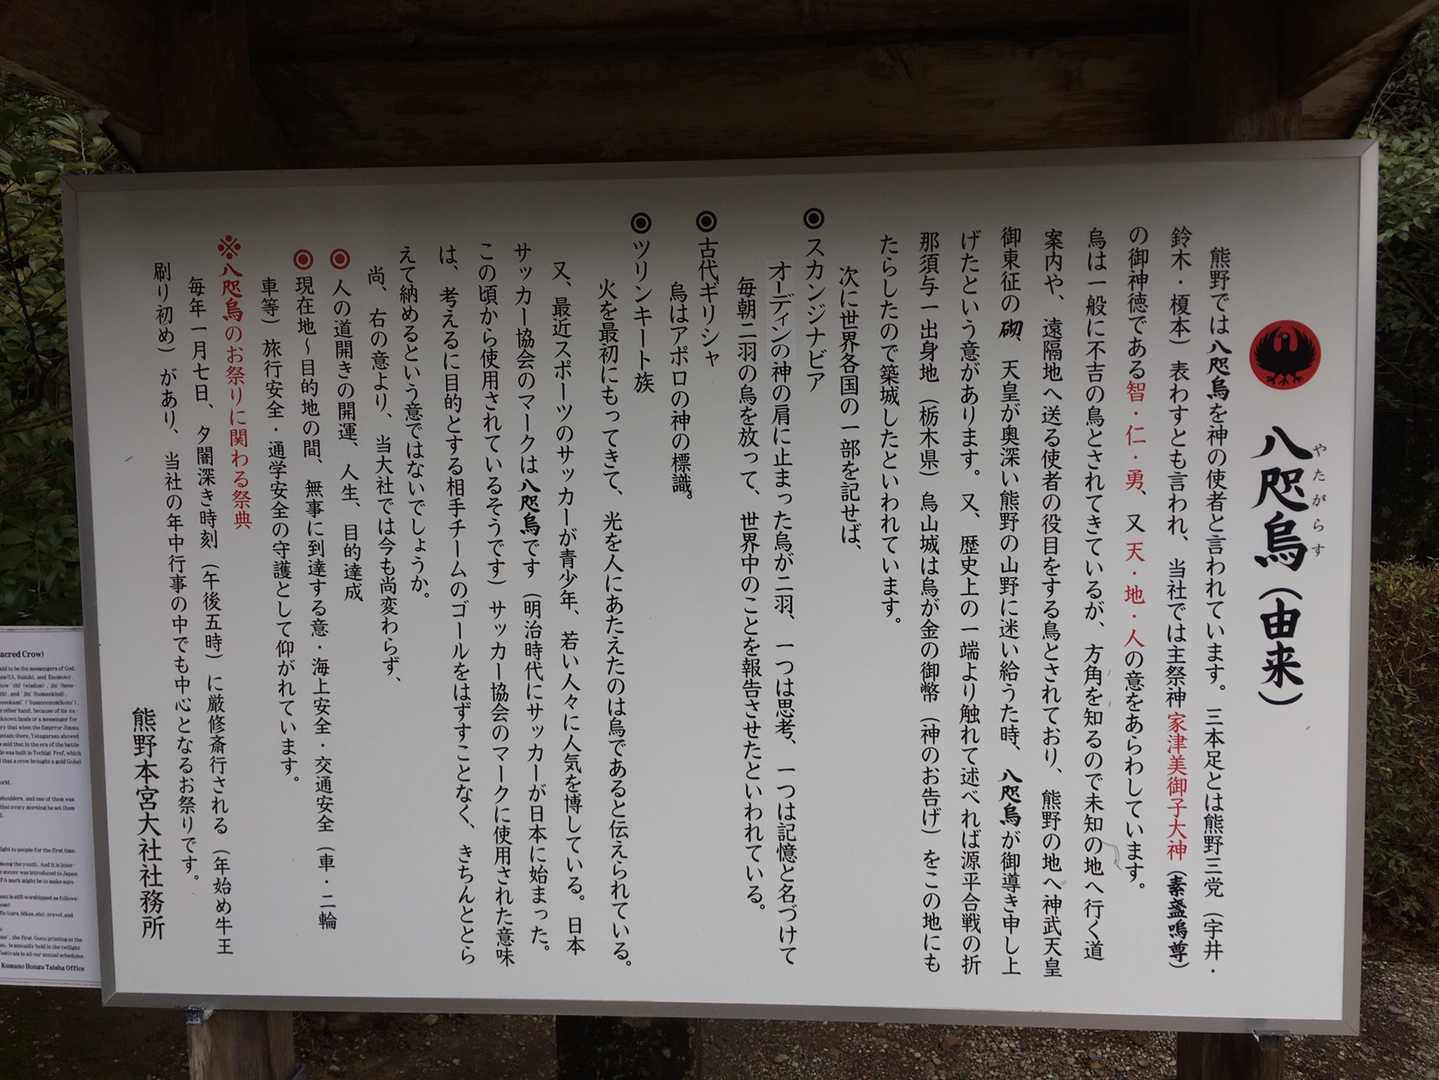 八咫烏（由来）
やたがらす
熊野では八咫烏を神の使者と言われています。三本足とは熊野三党（宇井・
鈴木・榎本）表わすとも言われ、当社では主祭神家津美御子大神（素盞嗚尊）
の御神徳である智・仁・勇、又天・地・人の意をあらわしています。
烏は一般に不吉の鳥とされてきているが、方角を知るので未知の地へ行く道
案内や、遠隔地へ送る使者の役目をする鳥とされており、熊野の地へ神武天皇
御東征の砌、天皇が奥深い熊野の山野に迷い給うた時、八咫烏が御導き申し上
げたという意があります。又、歴史上の一端より触れて述べれば源平合戦の折
那須与一出身地（栃木県）烏山城は烏が金の御幣（神のお告げ）をこの地にも
たらしたので築城したといわれています。
次に世界各国の一部を記せば、
◉スカンジナビア
オーディンの神の肩に止まった烏が二羽、一つは思考、一つは記憶と名づけて
毎朝二羽の烏を放って、世界中のことを報告させたといわれている。
◉古代ギリシャ
烏はアポロの神の標識。
◉ツリンキート族
火を最初にもってきて、光を人にあたえたのは烏であると伝えられている。
又、最近スポーツのサッカーが青少年、若い人々に人気を博している。日本
サッカー協会のマークは八咫烏です（明治時代にサッカーが日本に始まった。
この頃から使用されているそうです）サッカー協会のマークに使用された意味
は、考えるに目的とする相手チームのゴールをはずすことなく、きちんととら
えて納めるという意ではないでしょうか。
尚、右の意より、当大社では今も尚変わらず、
◉人の道開きの開運、人生、目的達成
◉現在地～目的地の間、無事に到達する意・海上安全・交通安全（車・二輪
車等）旅行安全・通学安全の守護として仰がれています。
※八咫烏のお祭りに関わる祭典
毎年一月七日、夕闇深き時刻（午後五時）に厳修斎行される（年始め牛王
刷り初め）があり、当社の年中行事の中でも中心となるお祭りです。
熊野本宮大社社務所
acred Crow)
Kumano Hongu Taisha Office